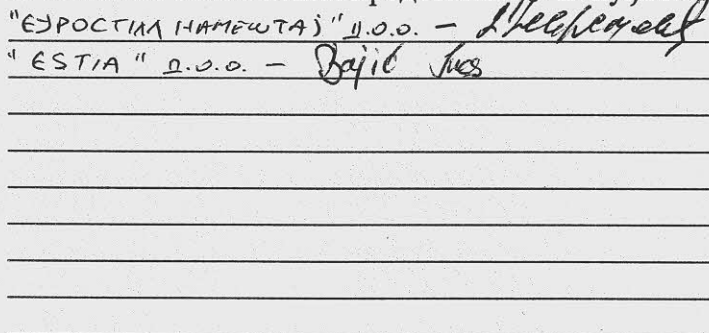 "ЕУРОСТИЛ НАМЕШТАЈ" Д.О.О. –
"ESTIA" D.O.O. – Bajić